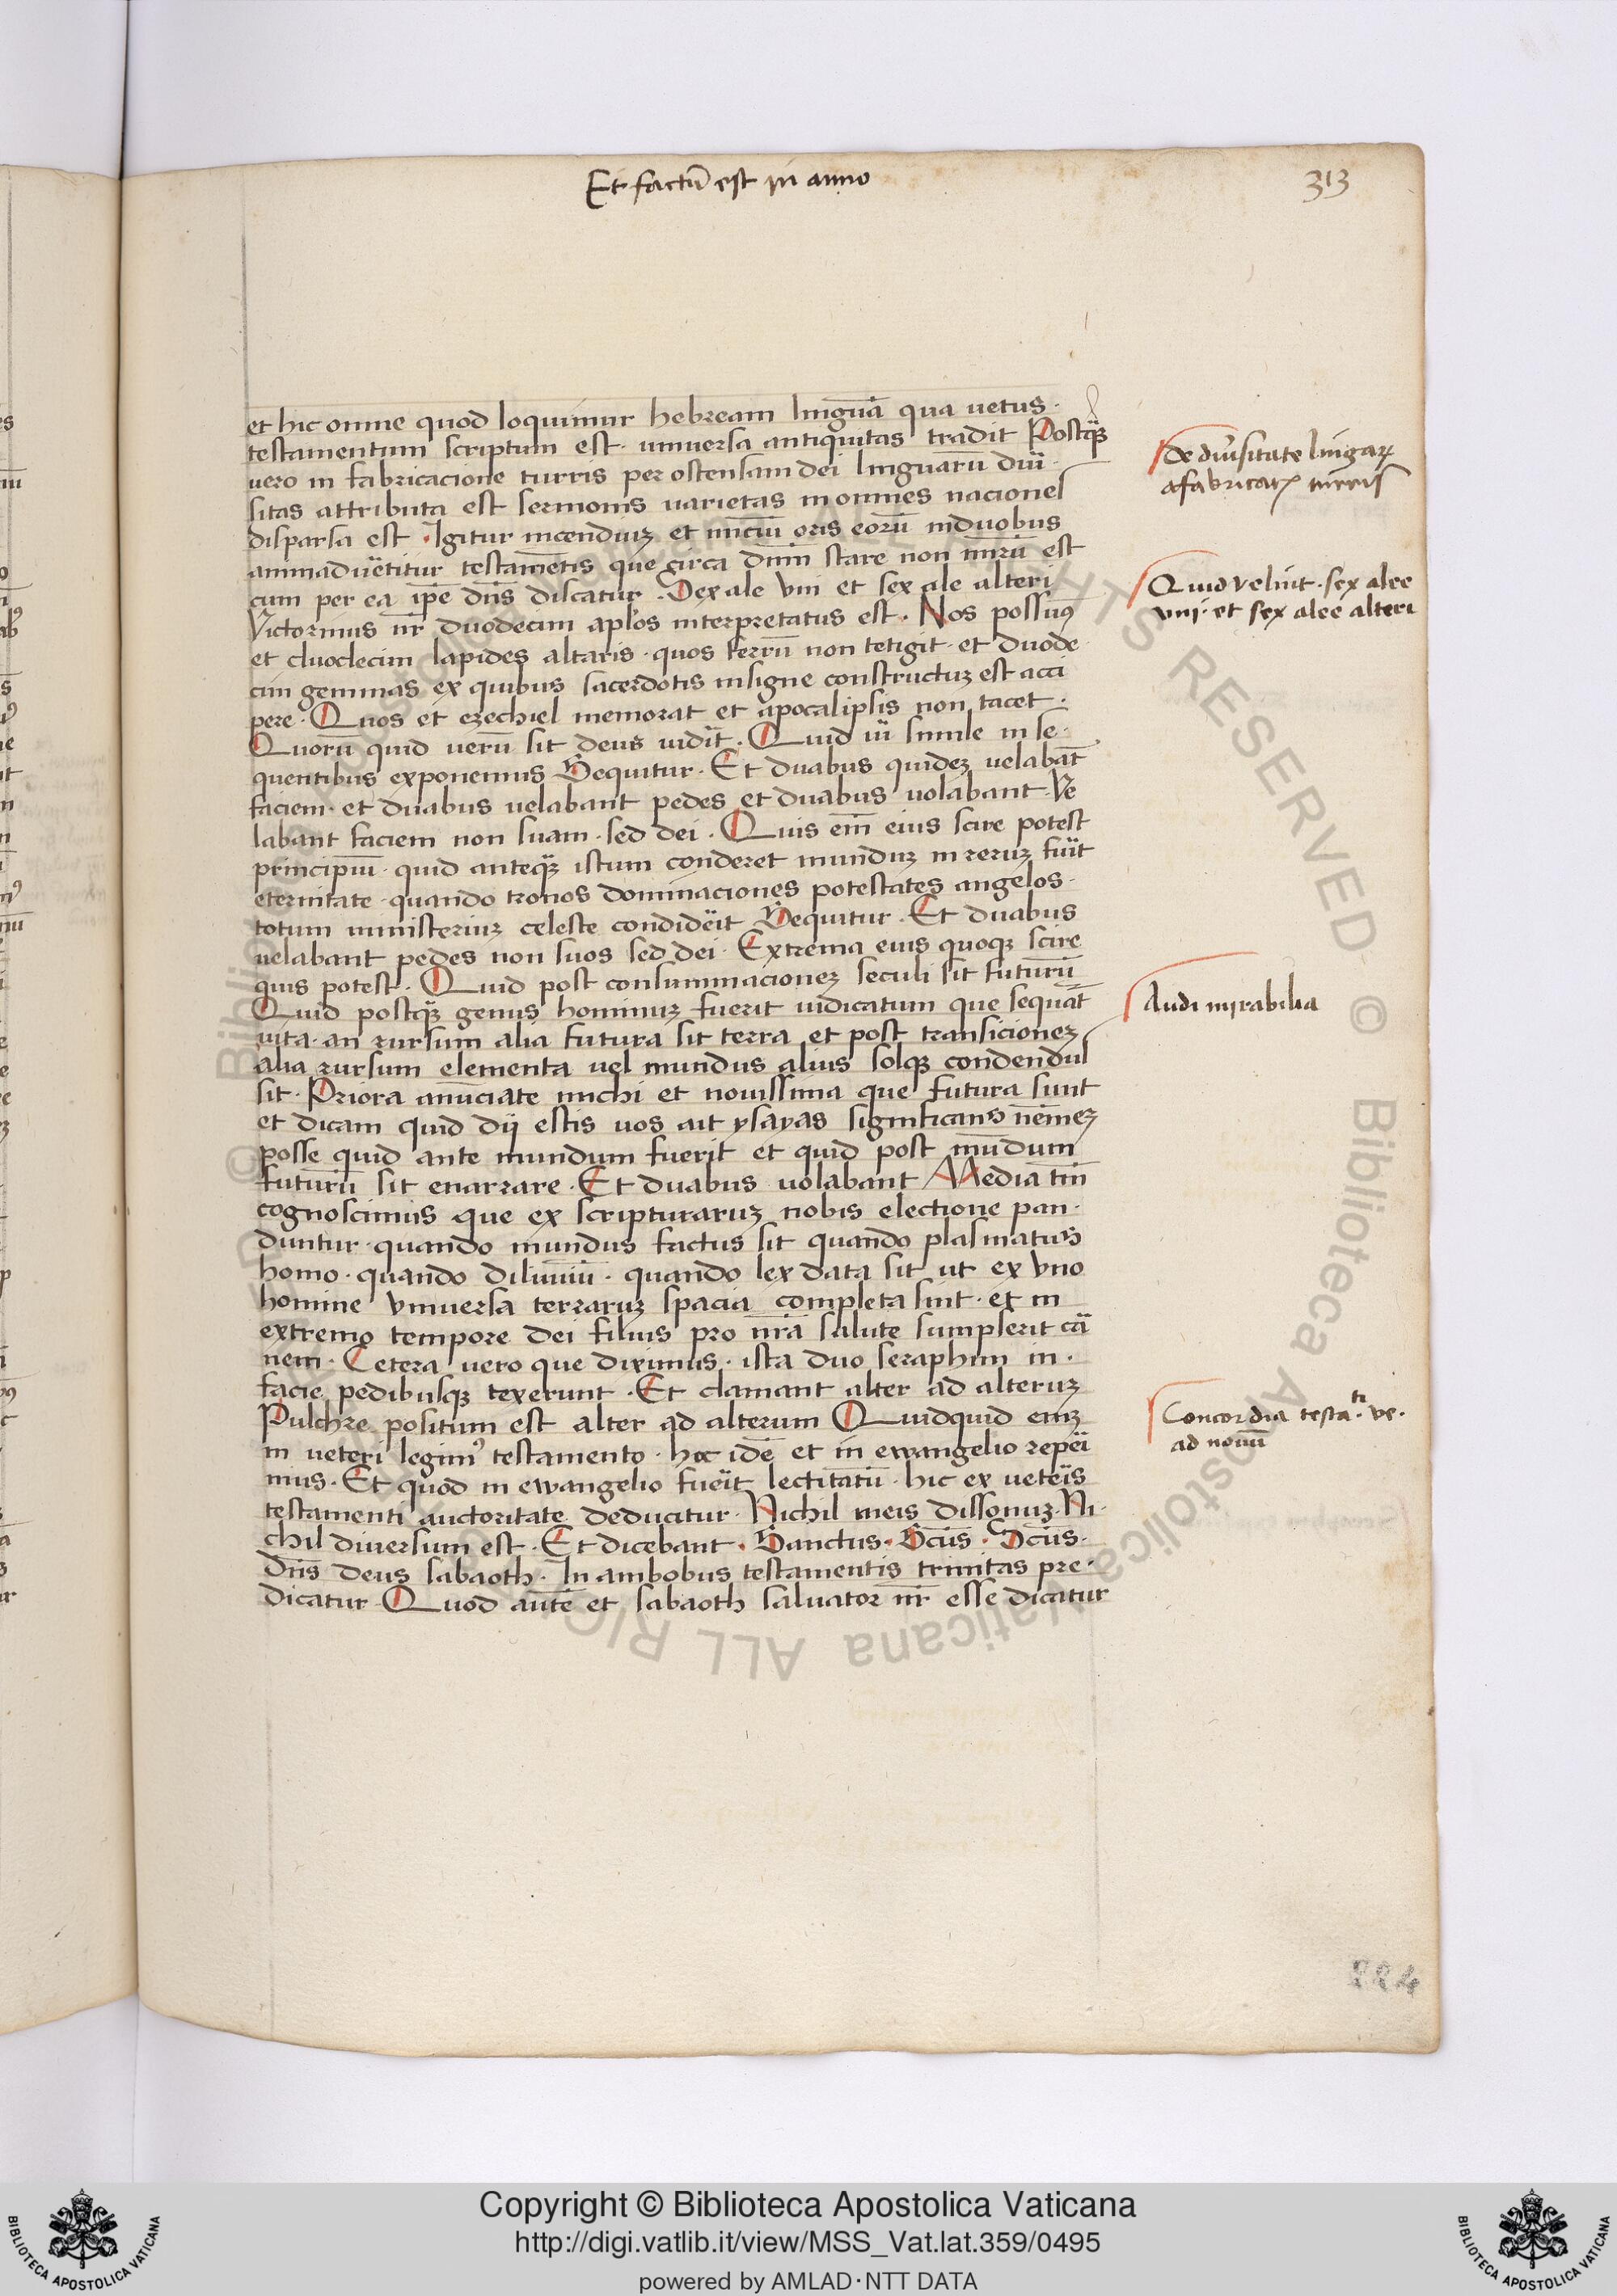 Et factū est in anno
313
et hic omne quod loquimur hebream linguā qua uetus ·
testamentum scriptum est · uniuersa antiquitas tradit Postqȝ
uero in fabricacione turris per ostensam dei linguarū diū ·
sitas attributa est sermonis uarietas in omnes naciones
disparsa est · Igitur incendiuȝ et iniciū oris eorū in duobus
animadūtitur testamētis que circa dnm̄ stare non mirū est
cum per ea ip̄e dn̄s discatur · Sex ale vni et sex ale alteri
Victorinus nr̄ duodecim aplōs interpretatus est · Nos possum9
et duodecim lapides altaris · quos ferrū non tetigit · et duode
cim gemmas ex quibus sacerdotis insigne constructuȝ est acci
pere · Quos et ezechiel memorat et apocalipsis non tacet ·
Quorū quid uerū sit deus uidīt · Quid ū simile in se ·
quentibus exponemus Sequitur · Et duabus quideȝ uelabāt
faciem · et duabus uelabant pedes et duabus uolabant · Ve
labant faciem non suam · sed dei · Quis em̄ eius scire potest
principiū · quid anteqȝ istum conderet munduȝ in reruȝ fūit
eternitate · quando tronos dominaciones potestates angelos ·
totum ministeriuȝ celeste condidēit Sequitur · Et duabus
uelabant pedes non suos sed dei · Extrema eius quoqȝ scire
quis potest · Quid post consummacioneȝ seculi sit futurū
Quid postqȝ genus hominuȝ fuerit iudicatum que sequāt
uita · an rursum alia futura sit terra et post transicioneȝ
alia rursum elementa uel mundus alius solqȝ condendus
sit · Priora anūciate michi et nouissima que futura sunt
et dicam quid dij estis uos ait ysayas significans nēmeȝ
posse quid ante mundum fuerit et quid post mūdum
futurū sit enarrare · Et duabus uolabant Media tm̄
cognoscimus que ex scripturaruȝ nobis electione pan ·
duntur · quando mundus factus sit quando plasmatus
homo · quando diluuiū · quando lex data sit ut ex vno
homine vniuersa terraruȝ spacia completa sint · et in
extremo tempore dei filius pro nrā salute sumpserit cā
nem · Cetera uero que diximus · ista duo seraphim in ·
facie pedibusqȝ texerunt · Et clamant alter ad alteruȝ
Pulchre positum est alter ad alterum Quidquid eniȝ
in ueteri legim9 testamento · hoc idē et in ewangelio repēi
mus · Et quod in ewangelio fuēit lectitatū · hic ex uetēis
testamenti auctoritate deducitur · Nichil in eis dissonuȝ · Ni ·
chil diuersum est · Et dicebant · Sanctus · Scūs · Scūs ·
Dn̄s deus sabaoth · In ambobus testamentis trinitas pre ·
dicatur Quod autē et sabaoth saluator nr̄ esse dicatur
De diūsitate lingarꝝ
a fabricatꝝ turris
Quid velint · sex alee
vni · et sex alee alteri
Audi mirabilia
Concordia testa.ti ve.
ad nouū
224
Copyright © Biblioteca Apostolica Vaticana
http://digi.vatlib.it/view/MSS_Vat.lat.359/0495
powered by AMLAD·NTT DATA
BIBLIOTECA APOSTOLICA VATICANA
BIBLIOTECA APOSTOLICA VATICANA